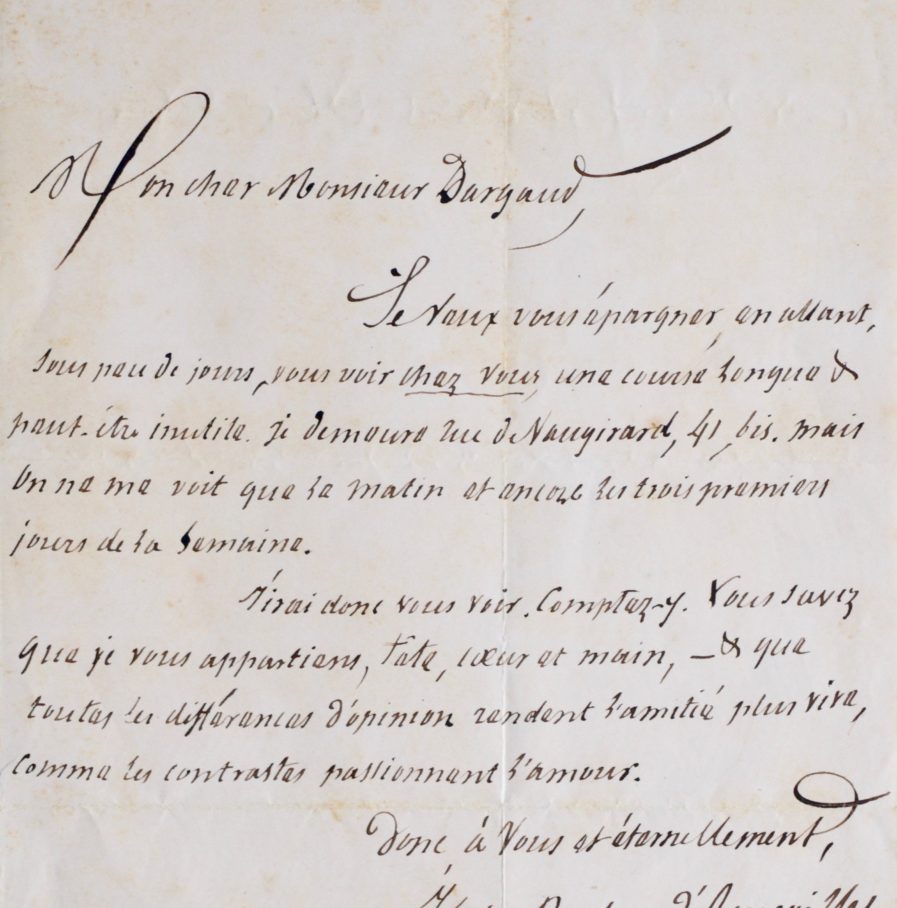 Mon cher Monsieur Dargaud,
Je veux vous épargner, en allant,
sous peu de jours, vous voir chez vous, une course longue &
peut-être inutile. Je demeure rue de Vaugirard, 41, bis. mais
on ne me voit que le matin et encore les trois premiers
jours de la semaine.
J'irai donc vous voir. Comptez-y. Vous savez
que je vous appartiens, tête, cœur et main, — & que
toutes les différences d'opinion rendent l'amitié plus vive,
comme les contrastes passionnent l'amour.
Donc, à Vous et éternellement,